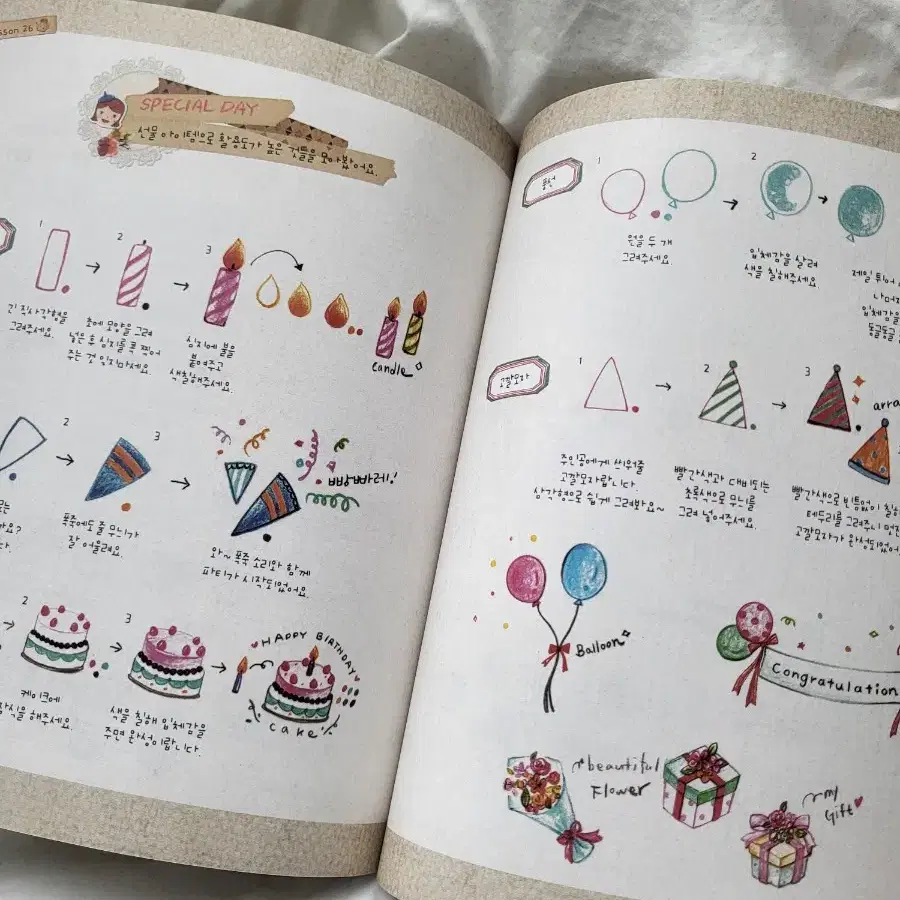 sson 26
SPECIAL DAY
선물 아이템으로 활용도가 높은 것들을 모아봤어요.
1
2
3
긴 직사각형을
그려주세요.
초에 모양을 그려
넣은 후 심지를 콕 찍어
주는 것 잊지마세요.
심지에 불을
붙여주고
색칠해주세요.
candle
2
3
폭죽에도 줄 무늬가
잘 어울려요.
빠밤빠라레!
와~ 폭죽 소리와 함께
파티가 시작되었어요.
2
3
케이크에
장식을 해주세요.
색을 칠해 입체감을
주면 완성이랍니다.
HAPPY BIRTHDAY
cake
풍선
1
2
원을 두 개
그려주세요.
입체감을 살려
색을 칠해주세요.
제일 튀어
나머지
입체감을
동글동글
고깔모자
1
2
3
주인공에게 씌워줄
고깔모자랍니다.
삼각형으로 쉽게 그려봐요~
빨간색과 대비되는
초록색으로 무늬를
그려 넣어주세요.
빨간색으로 빈틈없이 칠하
테두리를 그려주니 멋진
고깔모자가 완성되었어
arra
Balloon
Congratulation
beautiful
Flower
my
Gift